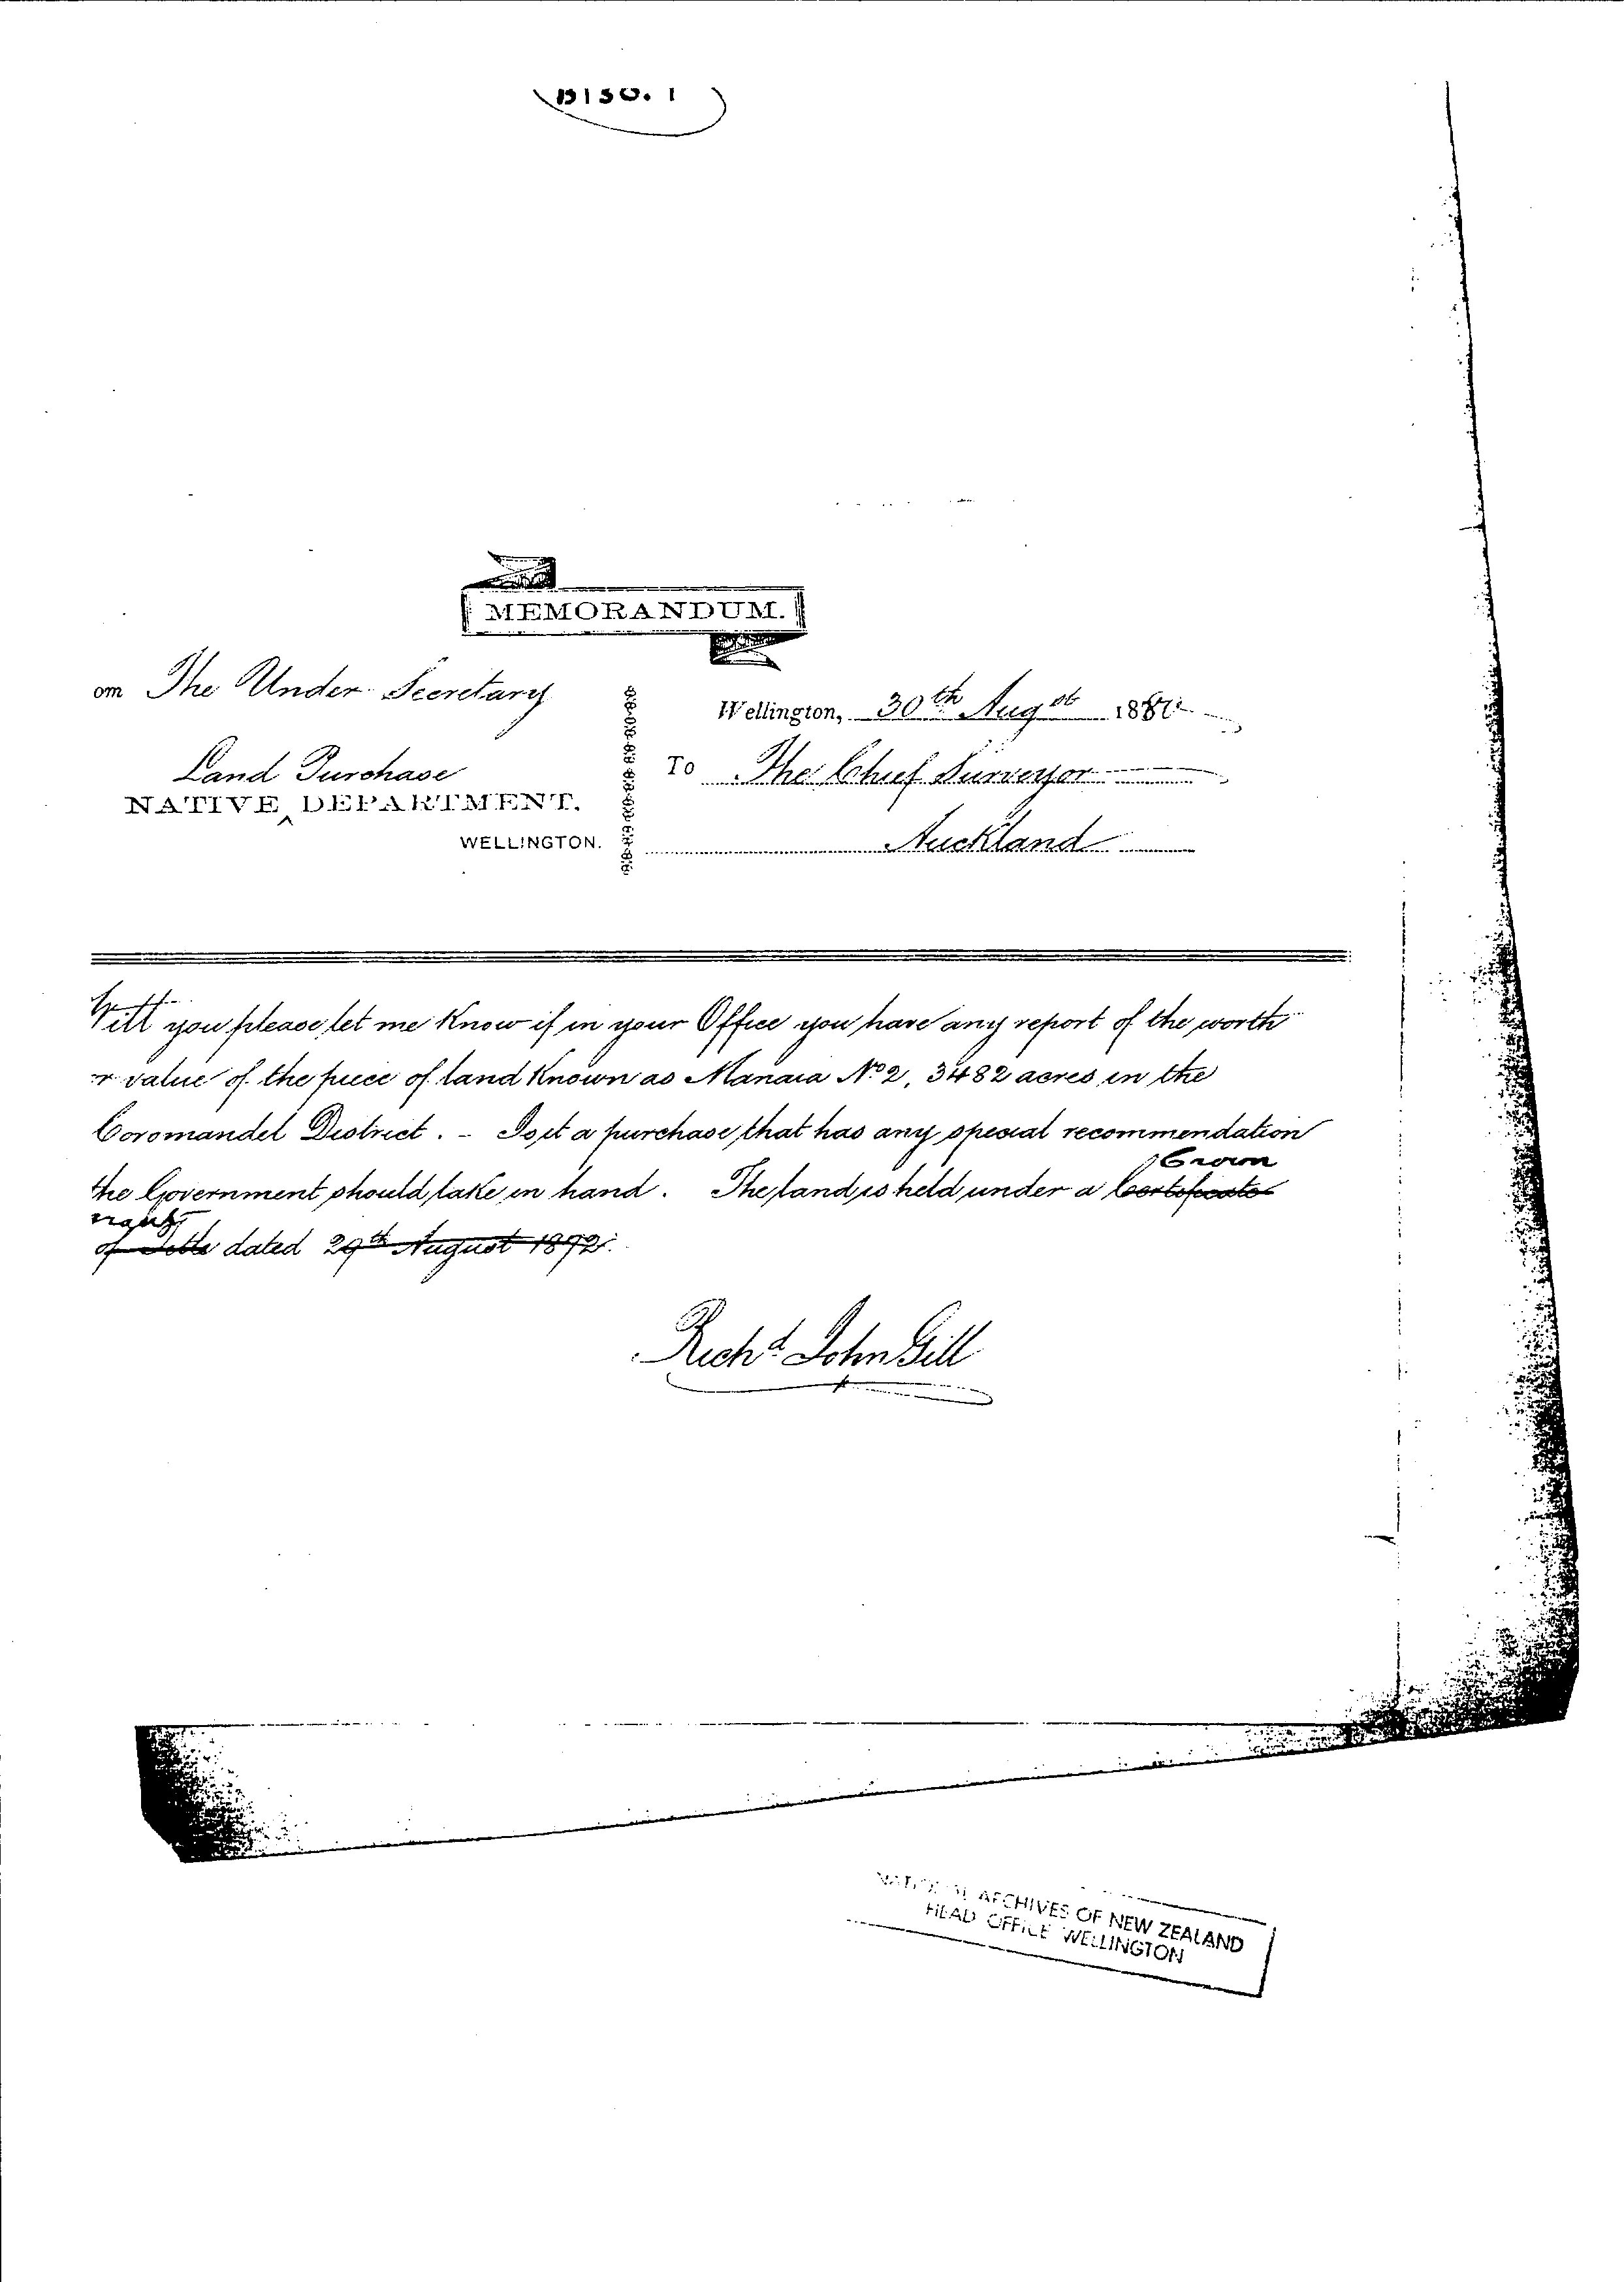 B130. 1
MEMORANDUM.
om The Under Secretary
Land Purchase
NATIVE ‸ DEPARTMENT.
WELLINGTON.
Wellington, 30th Augst 188
To The Chief Surveyor
Auckland
Will you please let me know if in your Office you have any report of the worth
or value of the piece of land known as Manaia No 2, 3482 acres in the
Coromandel District. - Is it a purchase that has any special recommendation
the Government should take in hand. The land is held under a Certificate
Crown
right
of Title dated 29th August 1872.
Richd John Gill
ARCHIVES OF NEW ZEALAND
HEAD OFFICE WELLINGTON